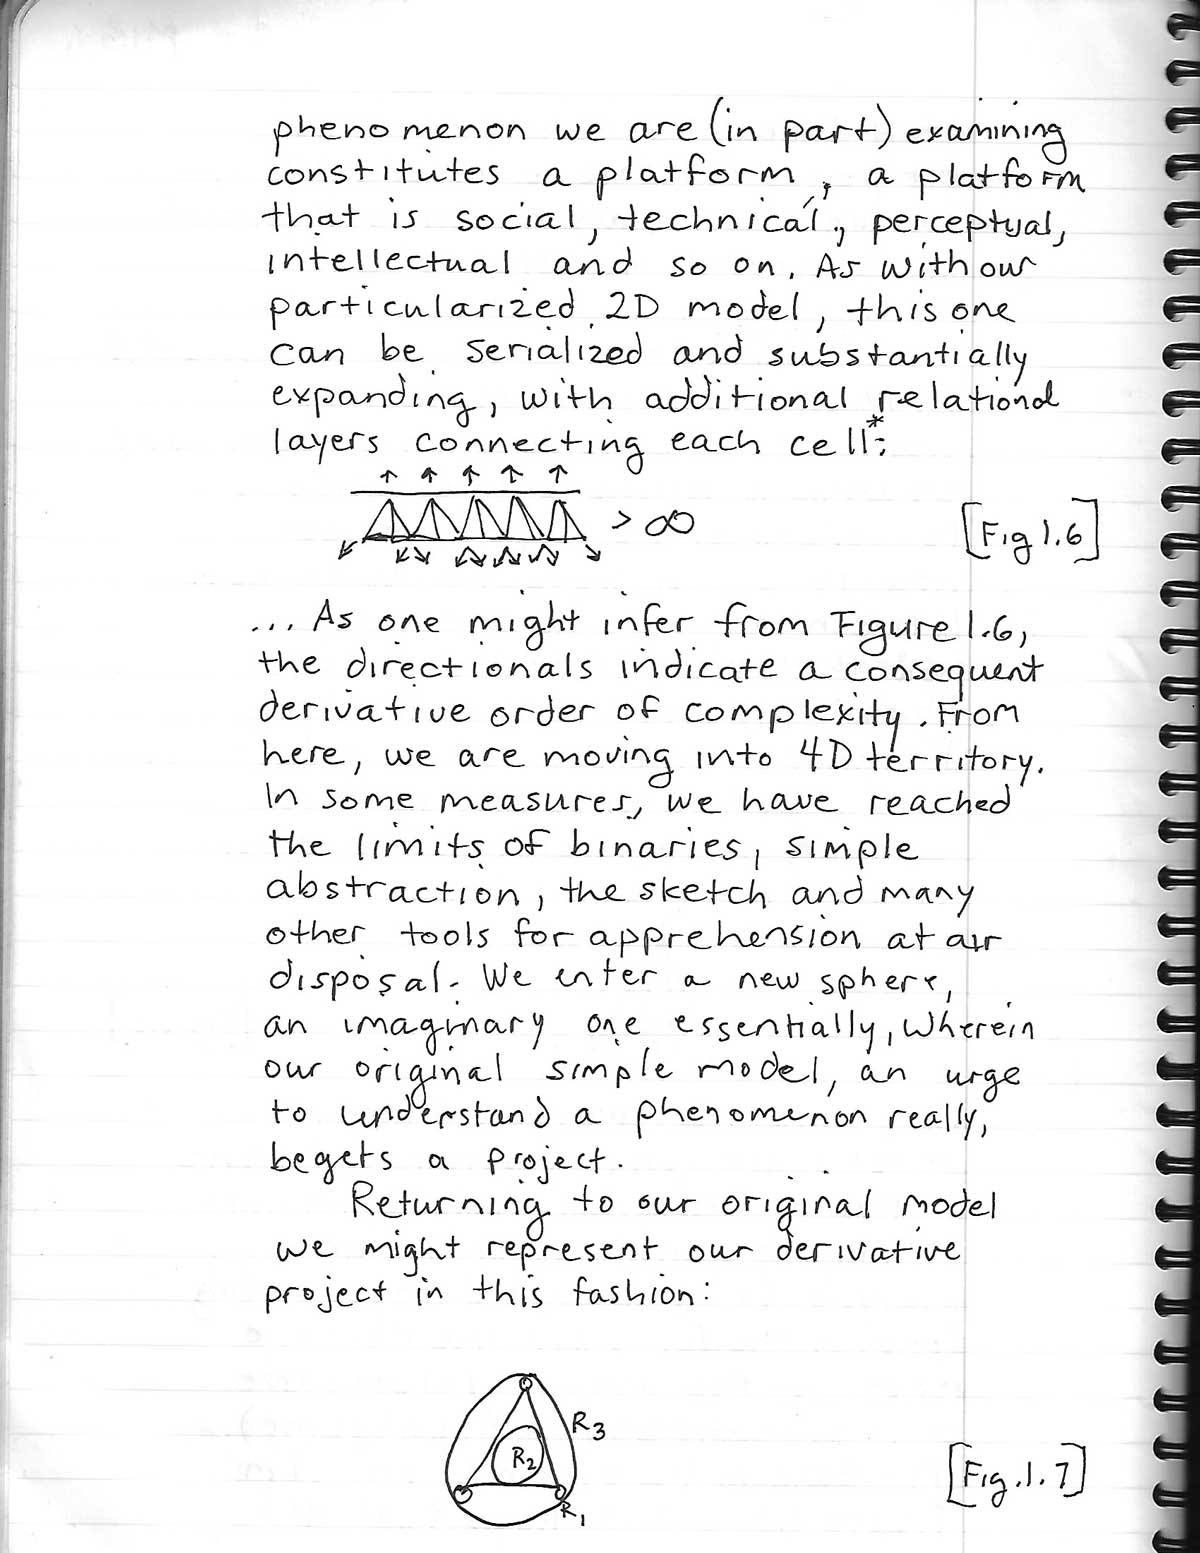 phenomenon we are (in part) examining
constitutes a platform, a platform
that is social, technical, perceptual,
intellectual and so on. As with our
particularized 2D model, this one
can be serialized and substantially
expanding, with additional relational
layers connecting each cell*:
> ∞ [Fig 1.6]
... As one might infer from Figure 1.6,
the directionals indicate a consequent
derivative order of complexity. From
here, we are moving into 4D territory.
In some measures, we have reached
the limits of binaries, simple
abstraction, the sketch and many
other tools for apprehension at air
disposal. We enter a new sphere,
an imaginary one essentially, wherein
our original simple model, an urge
to understand a phenomenon really,
begets a project.
Returning to our original model
we might represent our derivative
project in this fashion:
R3
R2
[Fig. 1.7]
R1